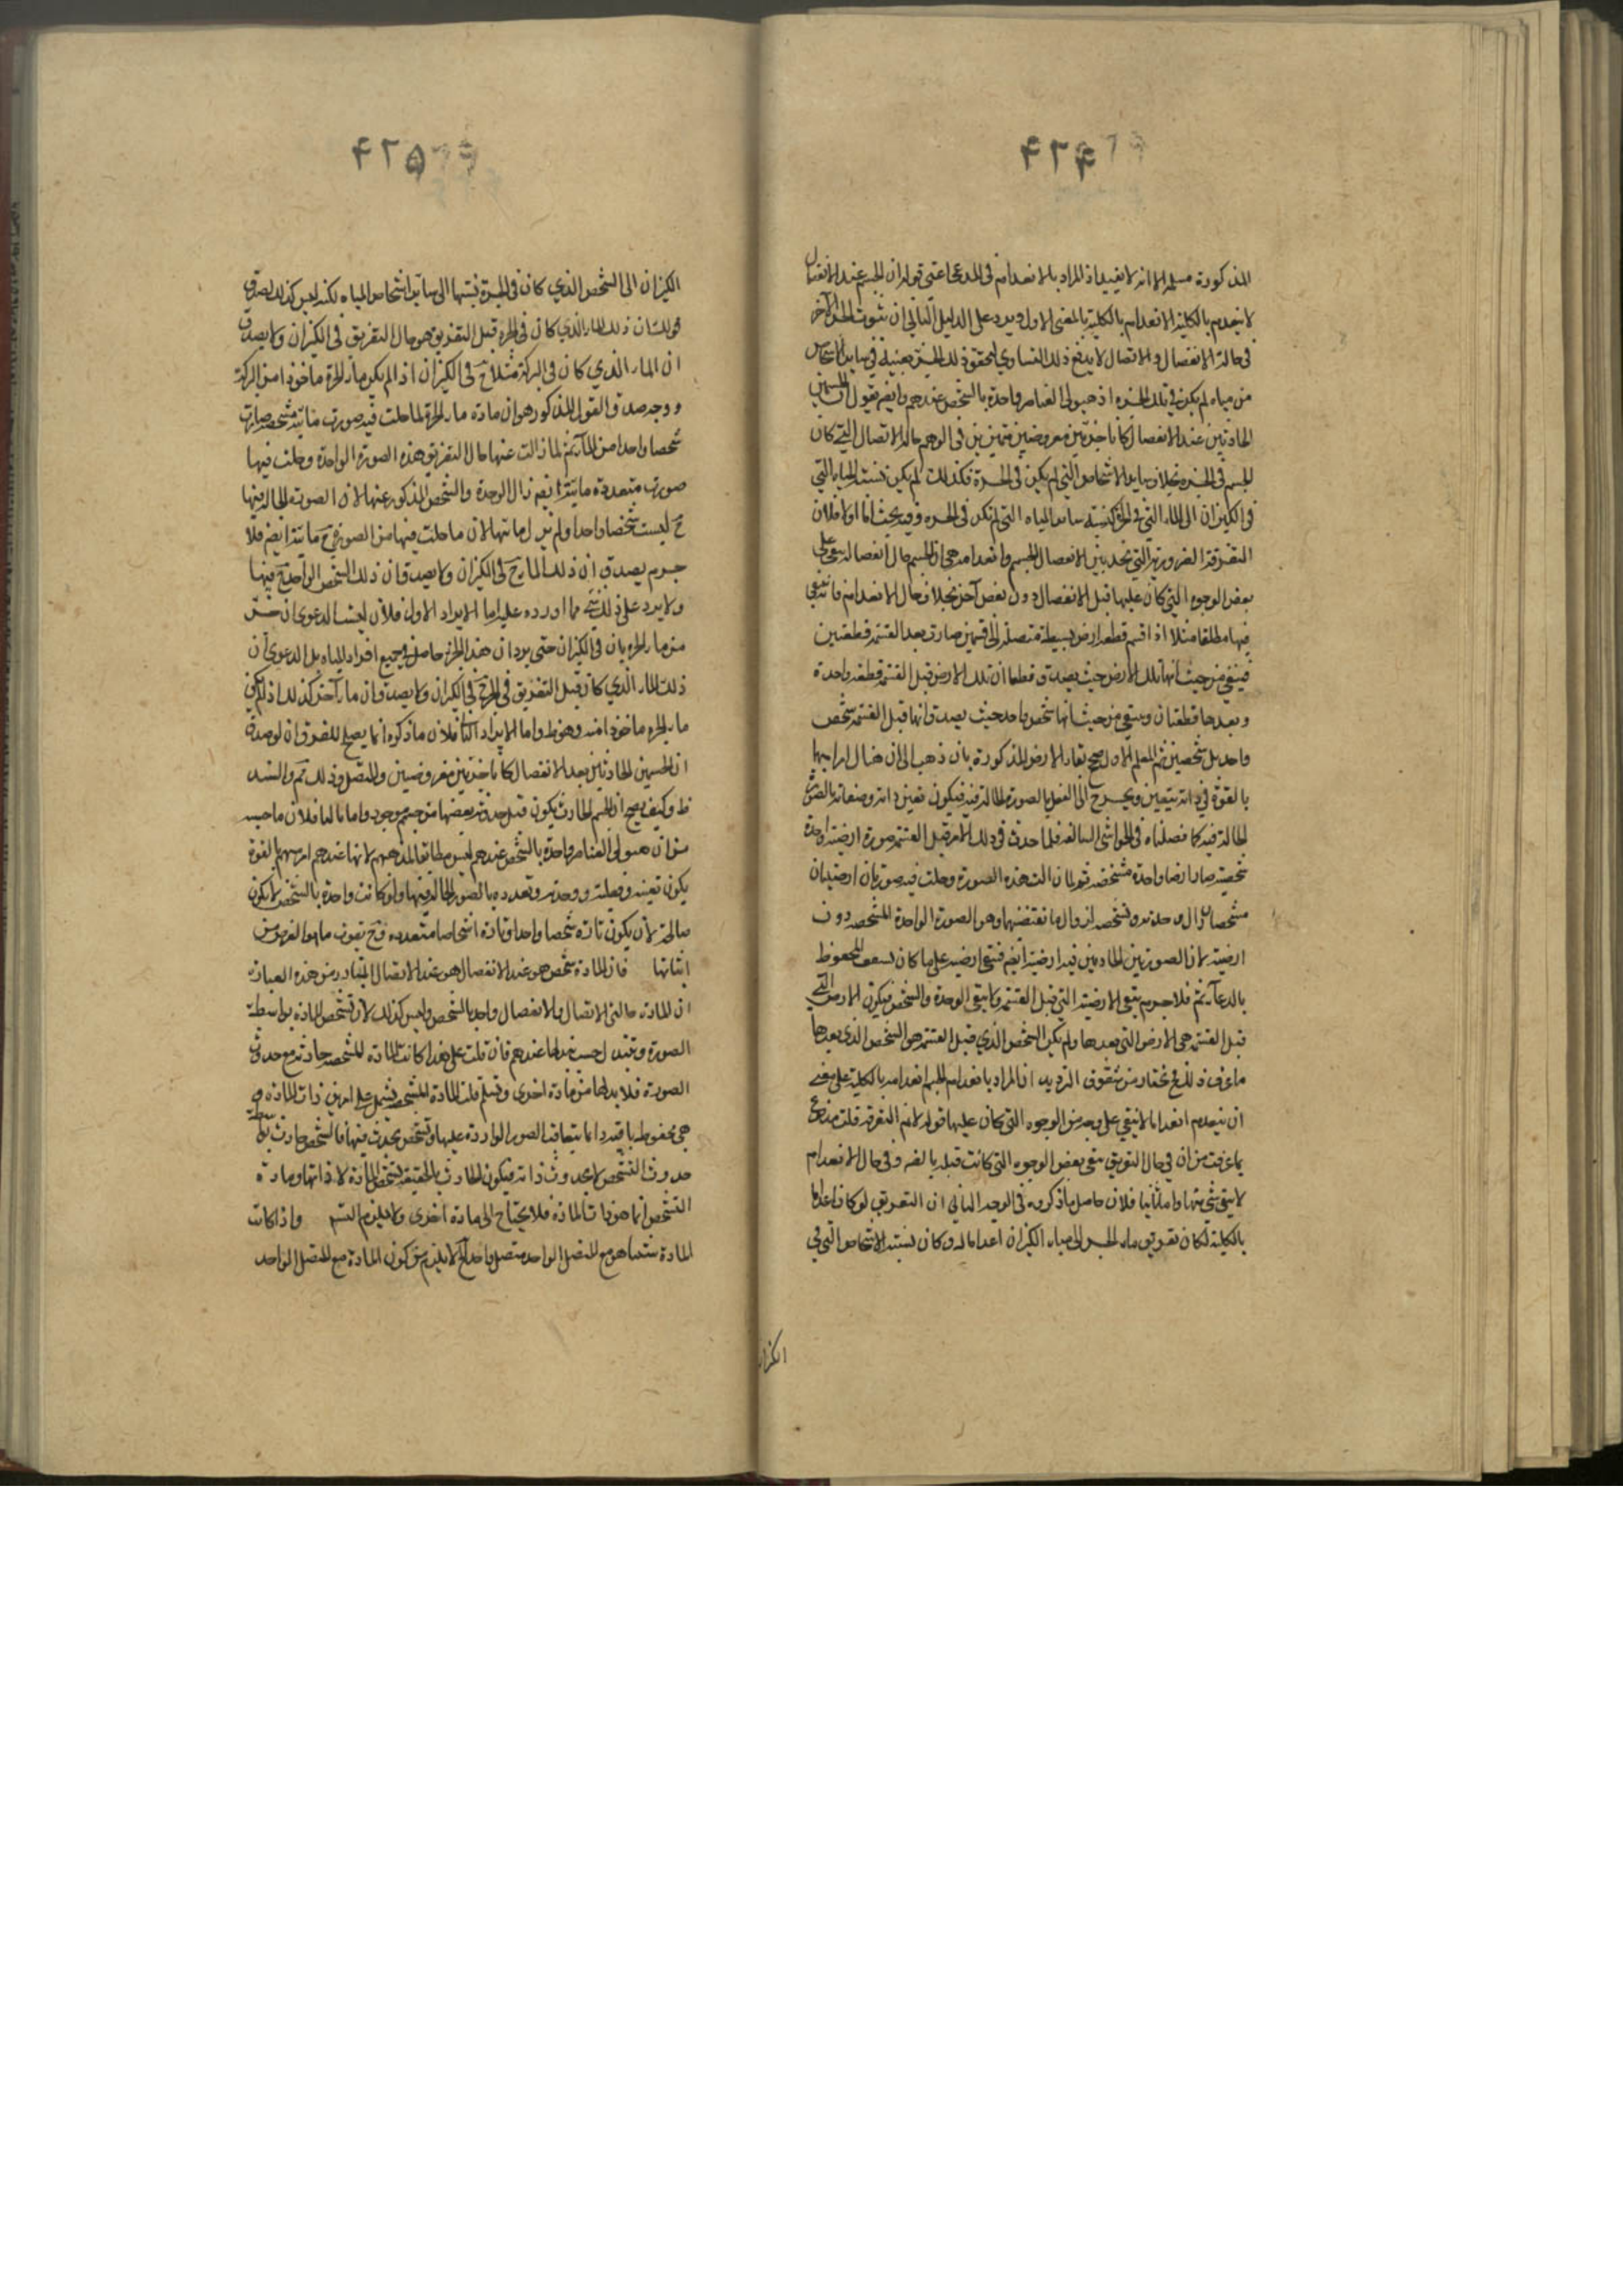 ۴۲۴
المذكورة مسلم الا انه لا يفيد اذ المراد بالانعدام فى المدعى اعنى قوله ان الجسم عند الانفصال
لا ينعدم بالكلية الانعدام بالكلية بالمعنى الاول ويرد على الدليل الثانى ان ثبوت الجزء الآخر
فى حالة الانفصال والاتصال لا يدفع ذلك التساوى لتحقق ذلك الجزء بعينه فى ساير الاشخاص
من مياه لم يكن فى تلك الجرة اذ هيولى العناصر واحدة بالشخص عندهم وايضم نقول ان الجسمين
الحادثين عند الانفصال كانا جزئين معروضين متميزين فى الوهم حالة الاتصال التى كان
للجسم فى الجرة بخلاف ساير الاشخاص التى لم يكن فى الجرة فكذلك لم يكن نسبة المياه التى
فى الكيزان الى الماء التى فى الجرة كنسبة ساير المياه التى لم تكن فى الجرة وفيه بحث اما اولا فلان
التفرقة الضرورية التى نجد بين الانفصال الجسم وانعدامه هى ان الجسم حال انفصاله يبقى على
بعض الوجوه التى كان عليها قبل الانفصال دون بعض آخر بخلاف حال الانعدام فانه ينفى
فيها مطلقا مثلا اذا قسم قطعة ارض بسيطة متصلة الى قسمين صارت بعد القسمة قطعتين
فيبقى من حيث انها تلك الارض حيث يصدق قطعا ان تلك الارض قبل القسمة قطعة واحدة
وبعدها قطعتان ويبقى من حيث انها شخص واحد حيث يصدق انها قبل القسمة شخص
واحد بل شخصين ثم المعلم الاول صحح بقاء الارض المذكورة بان ذهب الى ان هنال امرا مبهما
بالقوة فى ذاته يتعين ويخرج الى الفعل بالصورة الحالة فيه فيكون تعين ذاته وصفاته بالصورة
الحالة فيه كما فصلناه فى الحواشى السالفة فلما حدث فى ذلك الامر قبل القسمة صورة ارضية واحدة
شخصية صار ارضا واحدة مشخصة ثم لما زالت هذه الصورة وحلت فيه صورتان ارضيتان
مشخصان زال وحدته وتشخصه لزوال ما يقتضيها وهو الصورة الواحدة المشخصة دون
ارضيته لان الصورتين الحادثين فيه ارضية ايضم فبقى ارضيته على ما كان لسعف المحفوظ
بالدعآئم فلا جرم يبقى الارضية التى قبل القسمة ولا يبقى الوحدة والشخص فيكون الارض التى
قبل القسمة هى الارض التى بعدها ولم يكن الشخص الذى قبل القسمة هو الشخص الذى بعدها
ان ينعدم انعداما لا يبقى على وجه من الوجوه التى كان عليها قوله لانم التفرقة قلت مندفع
بما عرفت من ان فى حال التفريق يبقى بعض الوجوه التى كانت قبله بالضرورة وفى حال الانعدام
لا يبقى شئ منها واما ثانيا فلان حاصل ما ذكروه فى الوجه الثانى ان التفريق لو كان اعداما
بالكلية لكان تفريق ماء الجرة الى مياه الكيزان اعداما له وكان نسبة الاشخاص التى فى
الكيزان
۴۲۵
الكيزان الى الشخص الذى كان فى الجرة نسبتها الى ساير اشخاص المياه لكنه ليس كذلك لصدق
قولنا ان ذلك الماء الذى كان فى الجرة قبل التفريق هو حال التفريق فى الكيزان ولا يصدق
ان الماء الذى كان فى البركة مثلا ح فى الكيزان اذا لم يكن ماء الجرة ماخوذا من البركة
ووجه صدق القول المذكور هو ان مادة ماء الجرة لما حلت فيه صورت مائية مشخصة صارت
شخصا واحدا من الماء ثم لما زالت عنها حال التفريق هذه الصورة الواحدة وحلت فيها
صورت متعددة مائية ايضم زال الوحدة والشخص المذكور عنها لان الصورة الحالة فيها
ح ليست شخصا واحدا ولم يزل مائيتها لان ما حلت فيها من الصورة ح مائية ايضم فلا
جرم يصدق ان ذلك الماء ح فى الكيزان ولا يصدق ان ذلك الشخص الواحد ح فيها
ولا يرد على ذلك شئ مما اورده عليه اما الايراد الاول فلان ليست الدعوى ان جزء
من ماء الجرة باق فى الكيزان حتى يرد ان هذا الجزء حاصل فى جميع افراد المياه بل الدعوى ان
ذلك الماء الذى كان قبل التفريق فى الجرة ح فى الكيزان ولا يصدق ان ماء آخر كذلك اذ لم يكن
ماء الجرة ماخوذا منه وهو ظ واما الايراد الثا فلان ما ذكره انما يصح للفرق ان لو صدق
ان الجسمين الحادثين بعد الانفصال كانا جزئين معروضين والمتصل وذلك مم والسند
ظ وكيف يصح ان الجسم الحادث يكون قبل حدوثه بعضها من جسم موجود واما ثالثا فلان ما حسبه
من ان هيولى العناصر واحدة بالشخص عندهم ليس مطابقا لمذهبهم لانها عندهم امر مبهم بالقوة
يكون تعينه وفعليته ووحدته وتعدده بالصور الحالة فيها ولو كانت واحدة بالشخص لا يكون
صالحة لان يكون تارة شخصا واحدا وتارة اشخاصا متعددة وح يفوت ما هو الغرض من
اثباتها فان المادة شخص هو عند الانفصال هو عند الاتصال المتبادر من هذه العبارة
ان المادة حالتى الاتصال والانفصال واحد بالشخص وليس كذلك لان تشخص المادة بواسطة
الصورة وتبدل بحسب تبدلها عندهم فان قلت على هذا كانت المادة المشخصة حادثة مع حدوث
الصورة فلا بد لها من مادة اخرى وتسلم قلت المادة المشخصة يشمل على امرين ذات المادة و
هى محفوظ باقية دائما يتعاقب الصور الواردة عليها وتشخص يحدث فيها فالشخص حادث بواسطة
حدوث التشخص لا بحدوث ذاته فيكون الحادث بالحقيقة تشخص المادة لا ذاتها ومادة
التشخص انما هو ذات المادة فلا يحتاج الى مادة اخرى ولا يلزم التسم واذا كانت
المادة بنفسها هو مع المتصل الواحد متصل واحد لا يلزم من كون المادة مع المتصل الواحد